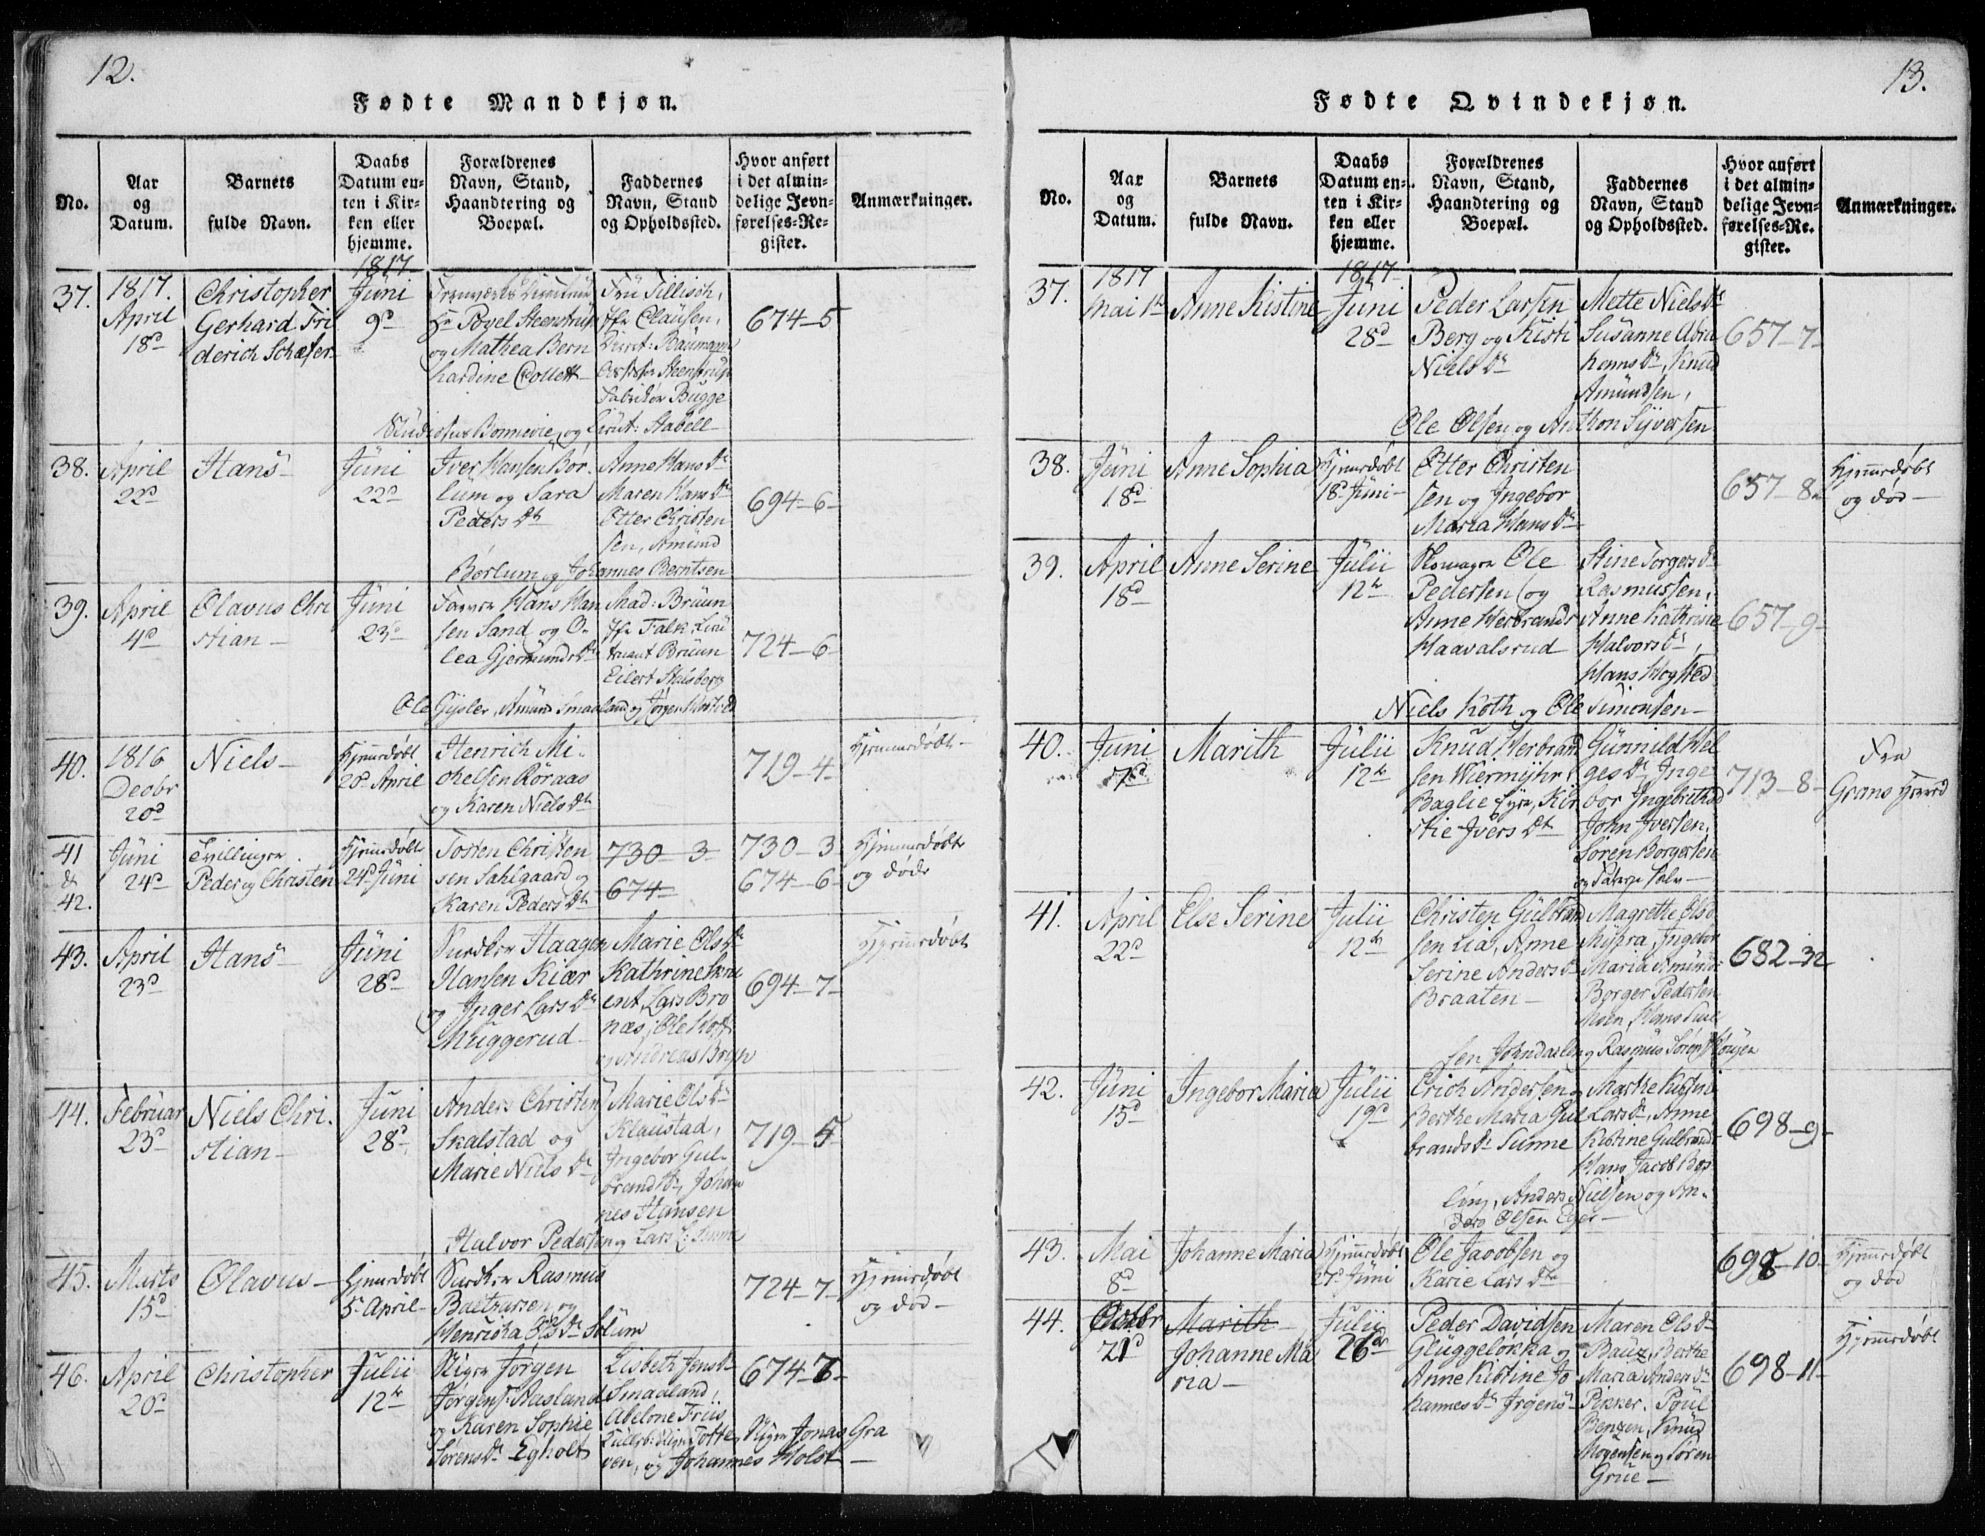 12.
Fødte Mandkjøn.
No.
Aar
og
Datum.
Barnets
fulde Navn.
Daabs
Datum en-
ten i Kir-
ken eller
hjemme.
Forældrenes
Navn, Stand,
Haandtering og
Boepæl.
Faddernes
Navn, Stand
og Opholdssted.
Hvor anført
i det almin-
delige Jevn-
førelses-Re-
gister.
Anmærkninger.
37.
1817.
April
18d
Christopher
Gerhard Fri
derich Schæfer
1817
Juni
9d
Hr Povel Steenstrup
og Mathea Bern
hardine Collett
Frü Tillisch,
Jfr Clausen,
Baumann
Steenstrup
Fabrikør Bugge
Studiosus Bonnevie, og Lieut: Stabell
674-5
38.
April
22d
Hans
Juni
22d
Iver Hansen Bør-
lum og Sara
Peders Dtr
Anne Hans Dr
Maren Hans Dr
Otter Christen
sen, Amund
Børlum og Johannes Berntsen
694-6-
39.
April
4d
Olavus Chri
stian
Juni
23d
Hans Han
sen Sand og O-
lea Gjermunds Dr
Mad: Bruun
Jfr Falk, Lieu
tenant Bruun
Eilert
Ole Gisler, Amund Smaaland og Jørgen
724-6
40.
1816
Decbr
20d
Niels
Hjemmedøbt
20d April
Henrich Mi-
chelsen Røraas
og Karen Niels Dtr
719-4-
Hjemmedøbt-
41
&
42.
Juni
24d
Tvillinger
Peder og Christen
Hjemmedøbt
24d Juni
Tosten Christen
sen Sahlgaard og
Karen Peders Dtr
730-3
674
730-3-
674-6-
Hjemmedøbt
og døde
43.
April
23d
Hans
Juni
28d
Haagen
Hansen Kiær
og Inger Lars Dtr
Muggerud
Marie Ols Dr
Kathrine
Lars Bro
næs, Ole Hoff
og Andreas
694-7-
Hjemmedøbt
44.
Februar
23d
Niels Chri-
stian
Juni
28d
Anders Christen
Skalstad og
Marie Niels Dr
Marie Ols Dr
Klaustad,
Ingebor Gul-
brands Dr, Johan
nes Hansen
Halvor Pedersen og Lars
719-5
45.
Marts
15d
Olavus
Hjemmedøbt
5 April
Rasmus
Baltzersen og
Henricha Ols Dr Solum
724-7-
Hjemmedøbt
og død-
46.
April
20d
Christopher
Julii
12te
Stiger Jørgen
Jørgens: Aasland
og Karen Sophie
Sørens Dr Egholt
Lisbeth Jens Dr
Smaaland,
Abelone Friis
Totte, Stiger Jonas Gra
ven, og Johannes Holst
674-7-
13.
Fødte Qvindekjøn.
No.
Aar
og
Datum.
Barnets
fulde Navn.
Daabs
Datum en-
ten i Kir-
ken eller
hjemme.
Forældrenes
Navn, Stand,
Haandtering og
Boepæl.
Faddernes
Navn, Stand
og Opholdssted.
Hvor anført
i det almin-
delige Jevn-
førelses-Re-
gister.
Anmærkninger.
37.
1817
Mai 1te
Anne Kistine
1817
Juni
28d
Peder Larsen
Berg og Kisti
Niels Dr
Mette Niels Dr
Susanne Abra
hams Dr, Knud
Amundsen,
Ole Olsen og Anthon Syversen
657-7-
38.
Juni
18d
Anne Sophia
Hjemmedøbt
18d Juni-
Otter Christen
sen og Ingebor
Maria Hans Dr
657-8
Hjemmedøbt
og død-
39.
April
18d
Anne Serine
Julii
12te
Ole
Pedersen og
Anne Herbrands
Haavalsrud
Stine Torgers Dr
Rasmussen,
Anne Kathrine
Halvors Dr,
Hans Hogsted
Niels Koth og Ole Simonsen
657-9-
40.
Juni
7d
Marith
Julii
12te
Knud Herbrand
sen
Baglie Kir
stie Ivers Dtr
Gunnild Hel
ges Dr, Inge
bor Ingebrethsd
John Iversen,
Søren Borgersen
713-8-
Fra
Grans
41.
April
22d
Else Serine
Julii
12te
Christen Gulbrand
sen Lia, Anne
Serine Anders Dr
Braaten
Magrethe Ols D
Myhra, Ingebor
Maria Amunds
Børger Pedersen
Moen, Hans
sen og Rasmus
682-32
42.
Juni
15d
Ingebor Maria
Julii
19d
Erich Andersen
Berthe Maria Gul
brands Dr Sunne
Marthe Kistine
Lars Dr, Anne
Kistine Gulbrands
Hans Jacob Bøs
ling, Anders Nielsen og An-
ders Olsen Eger-
698-9-
43.
Mai
8d
Johanne Maria
Hjemmedøbt
27d Juni
Ole Jacobsen og
Karie Lars Dtr
698-10-
Hjemmedøbt
og død
44.
Octbr
21d
Marith
Johanne Ma
ria
Julii
26de
Peder Davidsen
Gluggeløkka og
Anne Kistine Jo
hannes Dr
Maren Ols Dr
Bauz, Berthe
Maria Anders Dr
Pikker, Poul
Benzen, Knud
Mogensen og Søren
Grue
698-11-
Hjemmedøbt